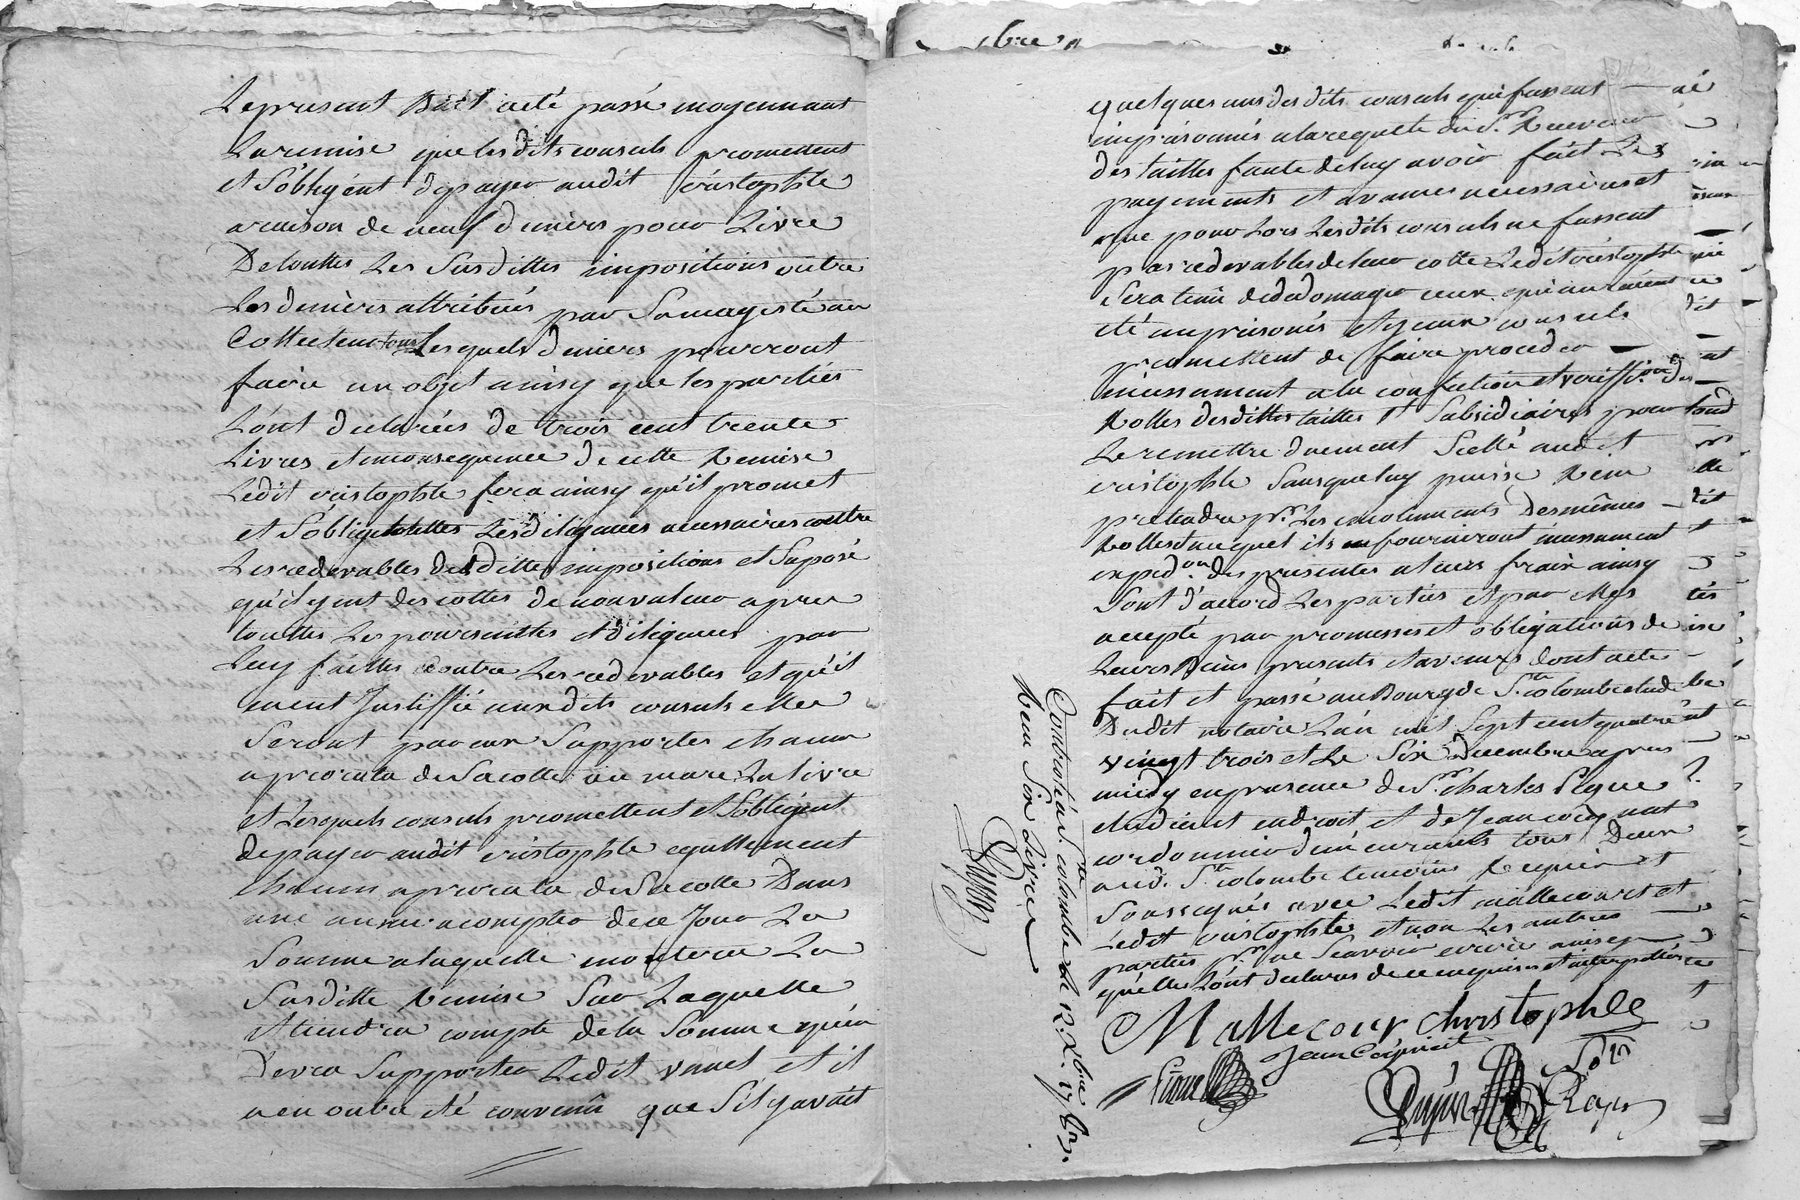 Le present Bail a eté passé moyennant
La remise que lesdits consuls promettent
et S'obligent de payer audit cristophle
a raison de neuf deniers pour Livre
De touttes Les Susdittes impositions outre
Les deniers attribués par Sa majesté au
Collecteur Lesquels deniers pourront
faire un objet ainsy que les parties
L'ont declarées de trois cent trente
Livres et en consequence de cette Remise
Ledit cristophle fera ainsy qu'il promet
et S'oblige touttes Les diligances necessaires contre
Les redevables desdittes impositions et Suposé
qu'il y eut des cottes de nonvaleur apres
touttes Les poursuittes et diligances par
Luy faittes contre Les redevables et qu'il
ment Justiffié auxdits consuls elles
Seront par eux Supportes chacun
a prorata de Sa cotte au marc La livre
et Lesquels consuls promettent et S'obligent
de payer audit cristophle egallement
chacun a prorata de Sa cotte Dans
une année a compter de ce Jour La
Somme a laquelle montera La
Susditte Remise Sur Laquelle
il tiendra compte de la Somme qu'en
Devra Supporter Ledit et il
a en outre eté convenu que S'il y avait
quelques uns des dits consuls qui fussent
imprisonnés a la requete du Sr. Receveur
des tailles faute de luy avoir fait Les
payements et avances necessaires et
que pour Lors Lesdits consuls ne fussent
pas redevables de leur cotte Ledit cristophle
Sera tenu de dedomager ceux qui auraient
eté emprisonés et yceux consuls
promettent de faire proceder
incessament a la confection et veriffi.on des
Rolles desdittes tailles et Subsidiaires pour
Le remettre duement Scellé audit
cristophle Sans que luy puisse Rien
pretendre pr. Les emoluments Desmêmes
Rolles duequel ils fourniront incessament
exped.on des presentes a leurs frais ainsy
Sont d'accord Les parties et par elles
accepté par promesses et obligations de
Leurs Biens presents et avenirs dont acte
fait et passé au Bourg de Ste. colombe etude
Dudit notaire L'an mil Sept cent quatre
vingt trois et Le Six Decembre apres
midy en presence de Sr. charles Pique
etudiant en droit et de Jean coignat
cordonnier demeurants tous Deux
aud. Ste. colombe temoins Requis et
Soussignés avec Ledit mallecourt et
Ledit cristophle et non Les autres
parties pr. ne Scavoir ecrire ainsy
qu'elles L'ont declarés de ce enquises et interpellées
Mallecour christophle
Jean Coignat
Pique
Controlé a Ste. colombe le 12. Xbre 1783.
Reçu Six Livres